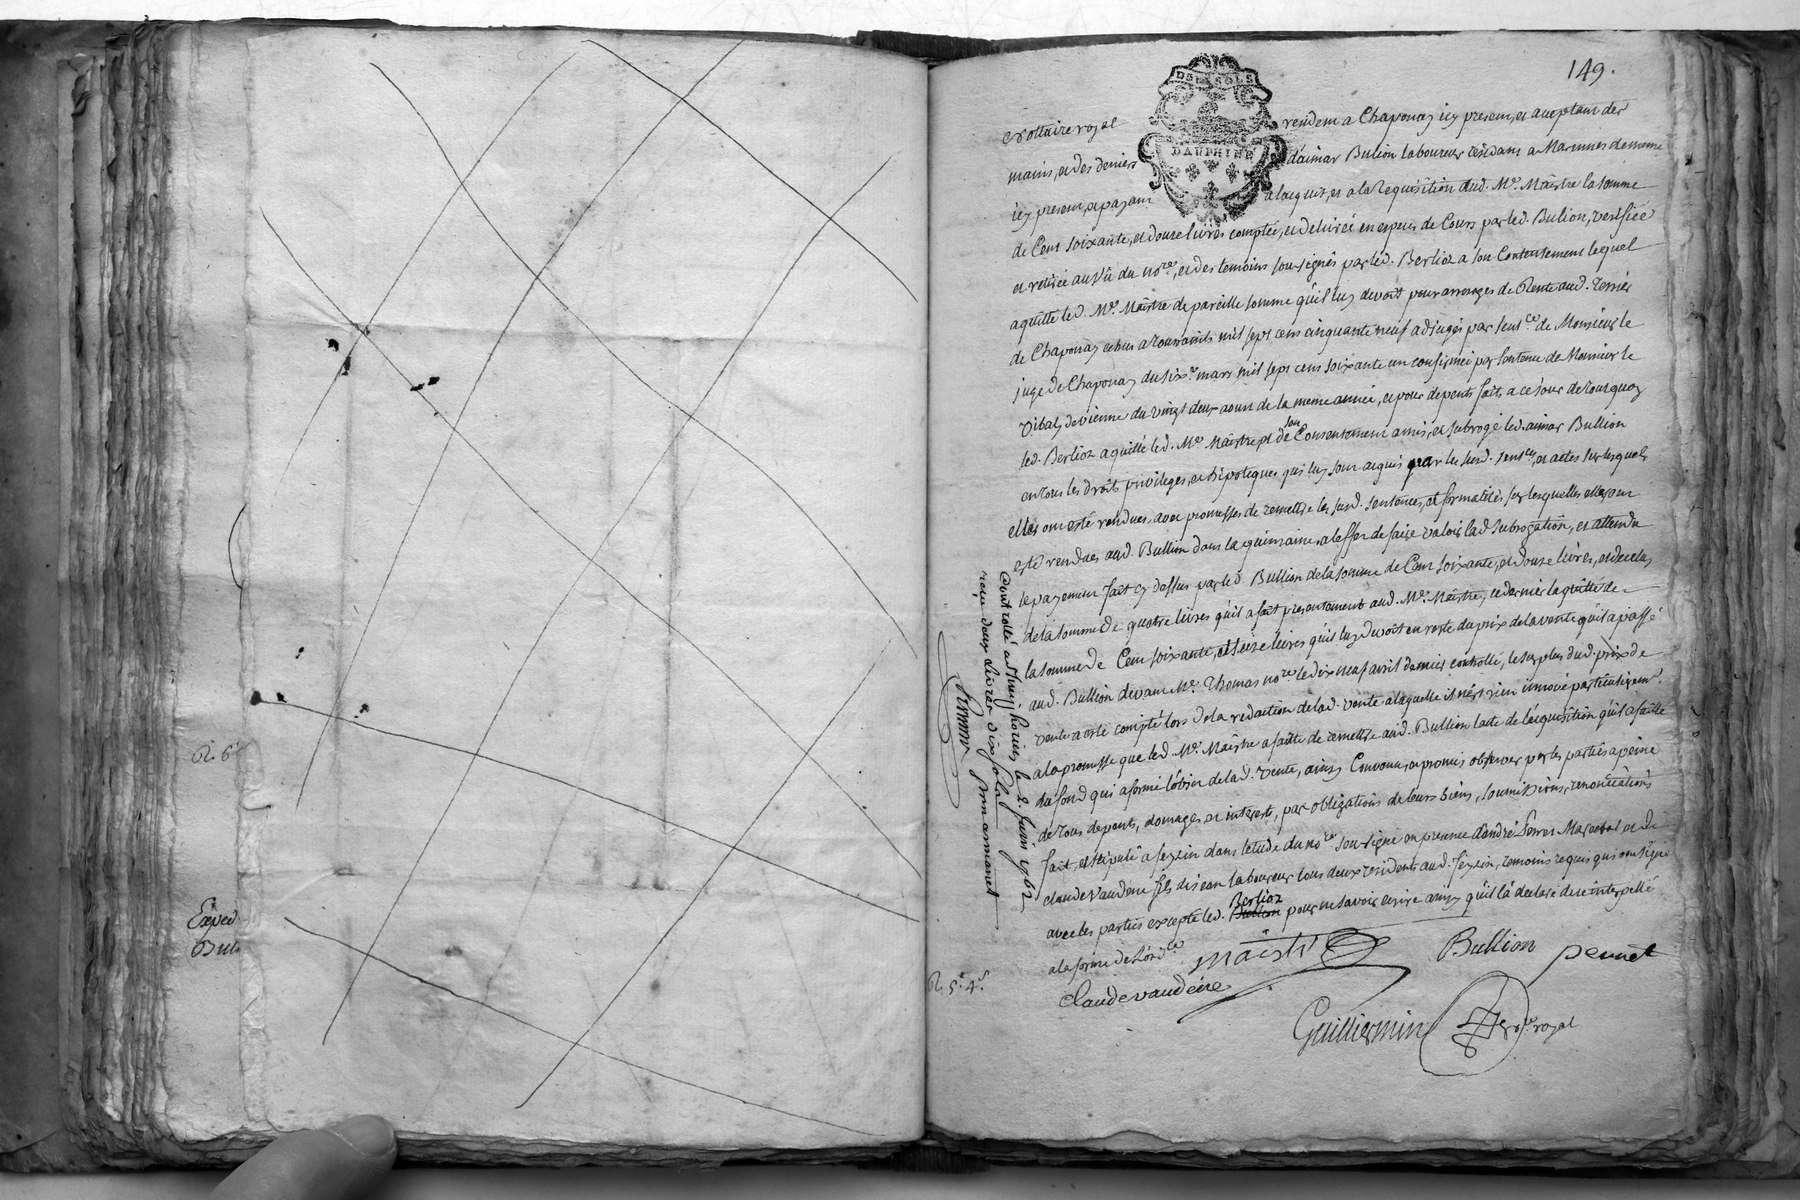 R. 6s
Exped
Bull
149.
DEUX SOLS
DAUPHINE
Nottaire royal resident a Chaponay icy present, et acceptant des
mains, et des deniers d'aimar Bulion laboureur residant a Marennes de meme
icy present, et payant a lacquit, et a la Requisition dud. Me. Maistre la somme
de Cent soixante, et douze livres comptée, et delivrée en especes de Cours par led. Bulion, verifiée
et retirée au vû du nore, et des temoins sou-signés par led. Berlioz a son Contentement lequel
aquitte led. Me. Maistre de pareille somme qu'il luy devoit pour arrerages de Rente aud. Terrier
de Chaponay echus a toussaints mil sept cens cinquante neuf adjugés par sentce de Monsieur le
juge de Chaponay du six mars mil sept cens soixante un confirmée par sentence de Monsieur le
Vibaly de vienne du vingt deux aoust de la meme année, et pour depents faits a ce jour de tout quoy
led. Berlioz a quitté led. Me Maistre et de son Consentement a mis, et subrogé led. aimar Bullion
en tous les droits privileges, et hipoteques qui luy sont acquis par les susd. sentces, et actes sur lesquels
elles ont esté rendues, avec promesses de remettre les susd. sentences, et formalités sur lesquelles elles ont
esté rendues aud. Bullion dans la quinzaine, a leffet de faire valoir lad subrogation, et attendu
le payement fait cy dessus par led Bullion de la somme de Cent soixante, et douze livres, et de celuy
de la somme de quatre livres qu'il a fait presentement aud. Me. Maistre, ce dernier la quitté de
la somme de Cent soixante, et seize livres qu'il luy devoit en reste du prix de la vente qu'il a passé
aud. Bullion devant Me. Thomas nore le dix neuf avril dernier controllé, le surplus dud. prix de
vente a esté compté lors de la redaction de lad. vente a laquelle il n'est rien innové particulierement
a la promesse que led. Me. Maistre a faitte de remettre aud. Bullion lacte de l'acquisition qu'il a faitte
du fond qui a formé l'objet de lad. vente, ainsy Convenu, et promis observer par les parties a peine
de tous depents, domages et interets, par obligations de leurs biens, soumissions, renonciations
fait, et stipulé a feyzin dans letude du nore sou-signé en presence d'andré Pernet Marechal et de
claude Vaudeine fils de jean laboureur tous deux residents aud. feyzin, temoins requis qui ont signé
avec les parties excepté led. Bullion Berlioz pour ne savoir ecrire ainsy qu'il la declaré de ce interpellé
a la forme de l'ordce
maistre
Bullion
pernet
claude vaudeine
Guilliermin nore royal
R. 5s 4d.
Controllé a St. simphorien le 2. Juin 1762
reçu deux livres dix sols